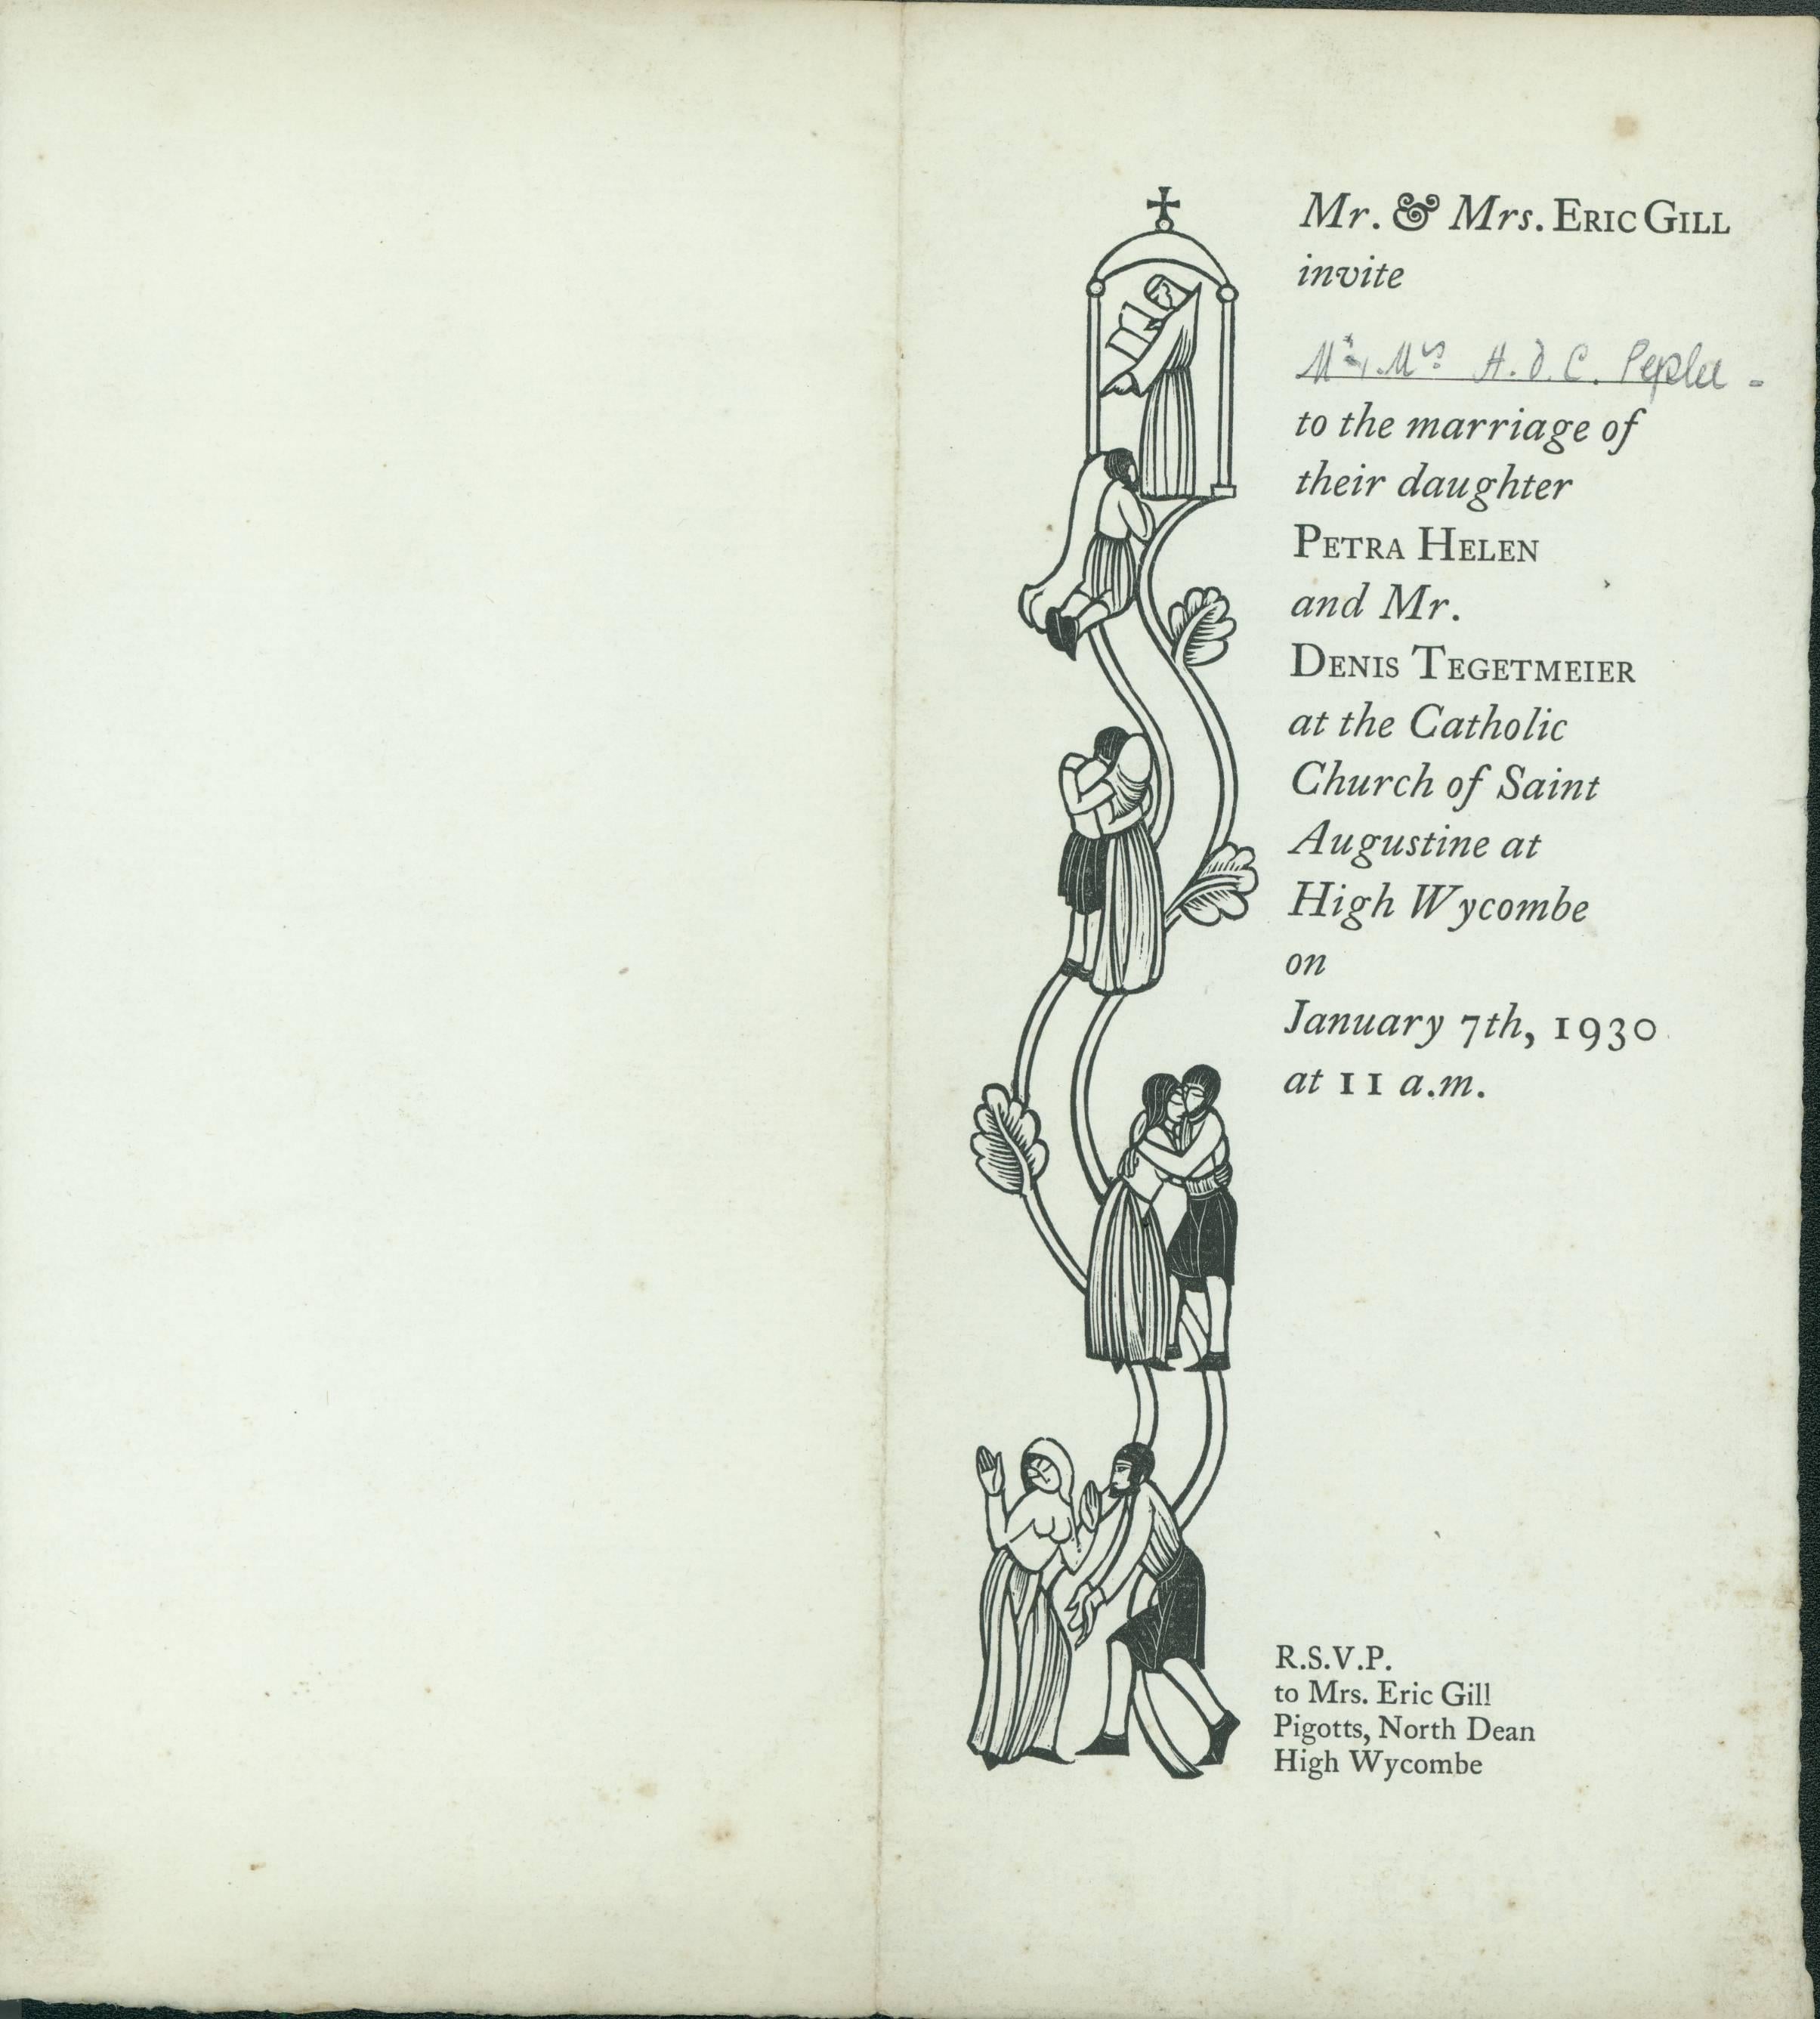 Mr. & Mrs. ERIC GILL
invite
Mr. & Mrs H. D. C. Pepler -
to the marriage of
their daughter
PETRA HELEN
and Mr.
DENIS TEGETMEIER
at the Catholic
Church of Saint
Augustine at
High Wycombe
on
January 7th, 1930
at 11 a.m.
R.S.V.P.
to Mrs. Eric Gill
Pigotts, North Dean
High Wycombe